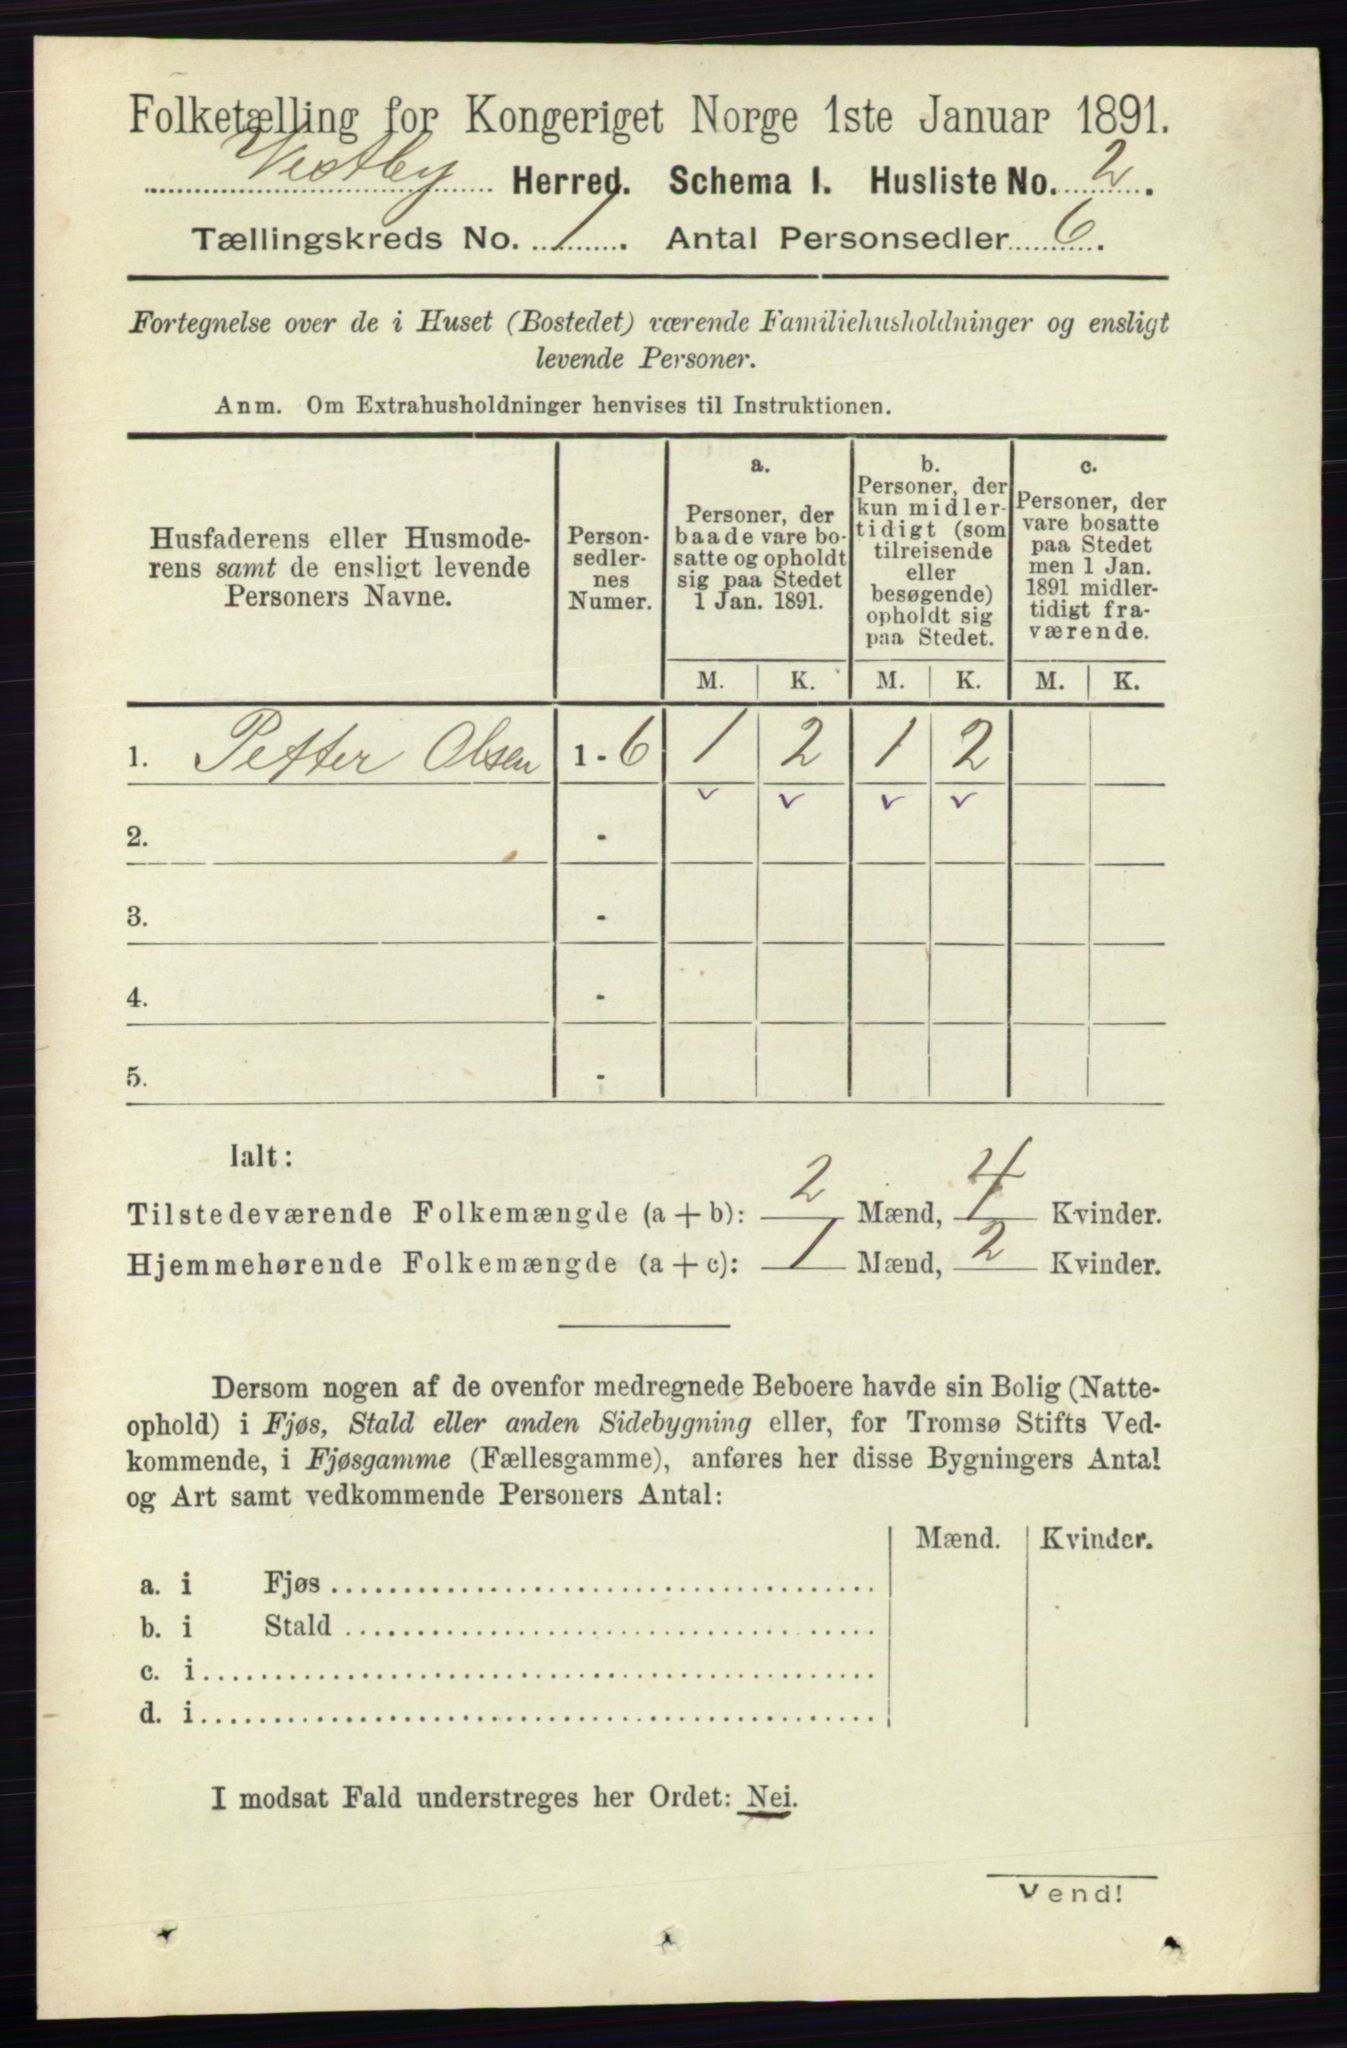 Folketælling for Kongeriget Norge 1ste Januar 1891.
Vestby Herred. Schema I. Husliste No. 2.
Tællingskreds No. 1. Antal Personsedler 6.
Fortegnelse over de i Huset (Bostedet) værende Familiehusholdninger og ensligt
levende Personer.
Anm. Om Extrahusholdninger henvises til Instruktionen.
Husfaderens eller Husmode-
rens samt de ensligt levende
Personers Navne.
Person-
sedler-
nes
Numer.
a.
Personer, der
baade vare bo-
satte og opholdt
sig paa Stedet
1 Jan. 1891.
b.
Personer, der
kun midler-
tidigt (som
tilreisende
eller
besøgende)
opholdt sig
paa Stedet.
c.
Personer, der
vare bosatte
paa Stedet
men 1 Jan.
1891 midler-
tidigt fra-
værende.
M. K. M. K. M. K.
1. Petter Olsen 1 - 6 1 2 1 2
v v v v
2. -
3. -
4. -
5. -
Ialt:
Tilstedeværende Folkemængde (a + b): 2 Mænd, 4 Kvinder.
Hjemmehørende Folkemængde (a + c): 1 Mænd, 2 Kvinder.
Dersom nogen af de ovenfor medregnede Beboere havde sin Bolig (Natte-
ophold) i Fjøs, Stald eller anden Sidebygning eller, for Tromsø Stifts Ved-
kommende, i Fjøsgamme (Fællesgamme), anføres her disse Bygningers Antal
og Art samt vedkommende Personers Antal:
Mænd. Kvinder.
a. i Fjøs
b. i Stald
c. i
d. i
I modsat Fald understreges her Ordet: Nei.
Vend!